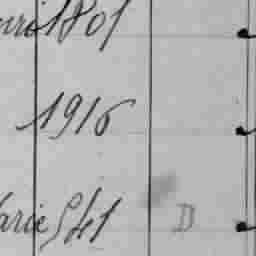 1801
1916
arie 541 D